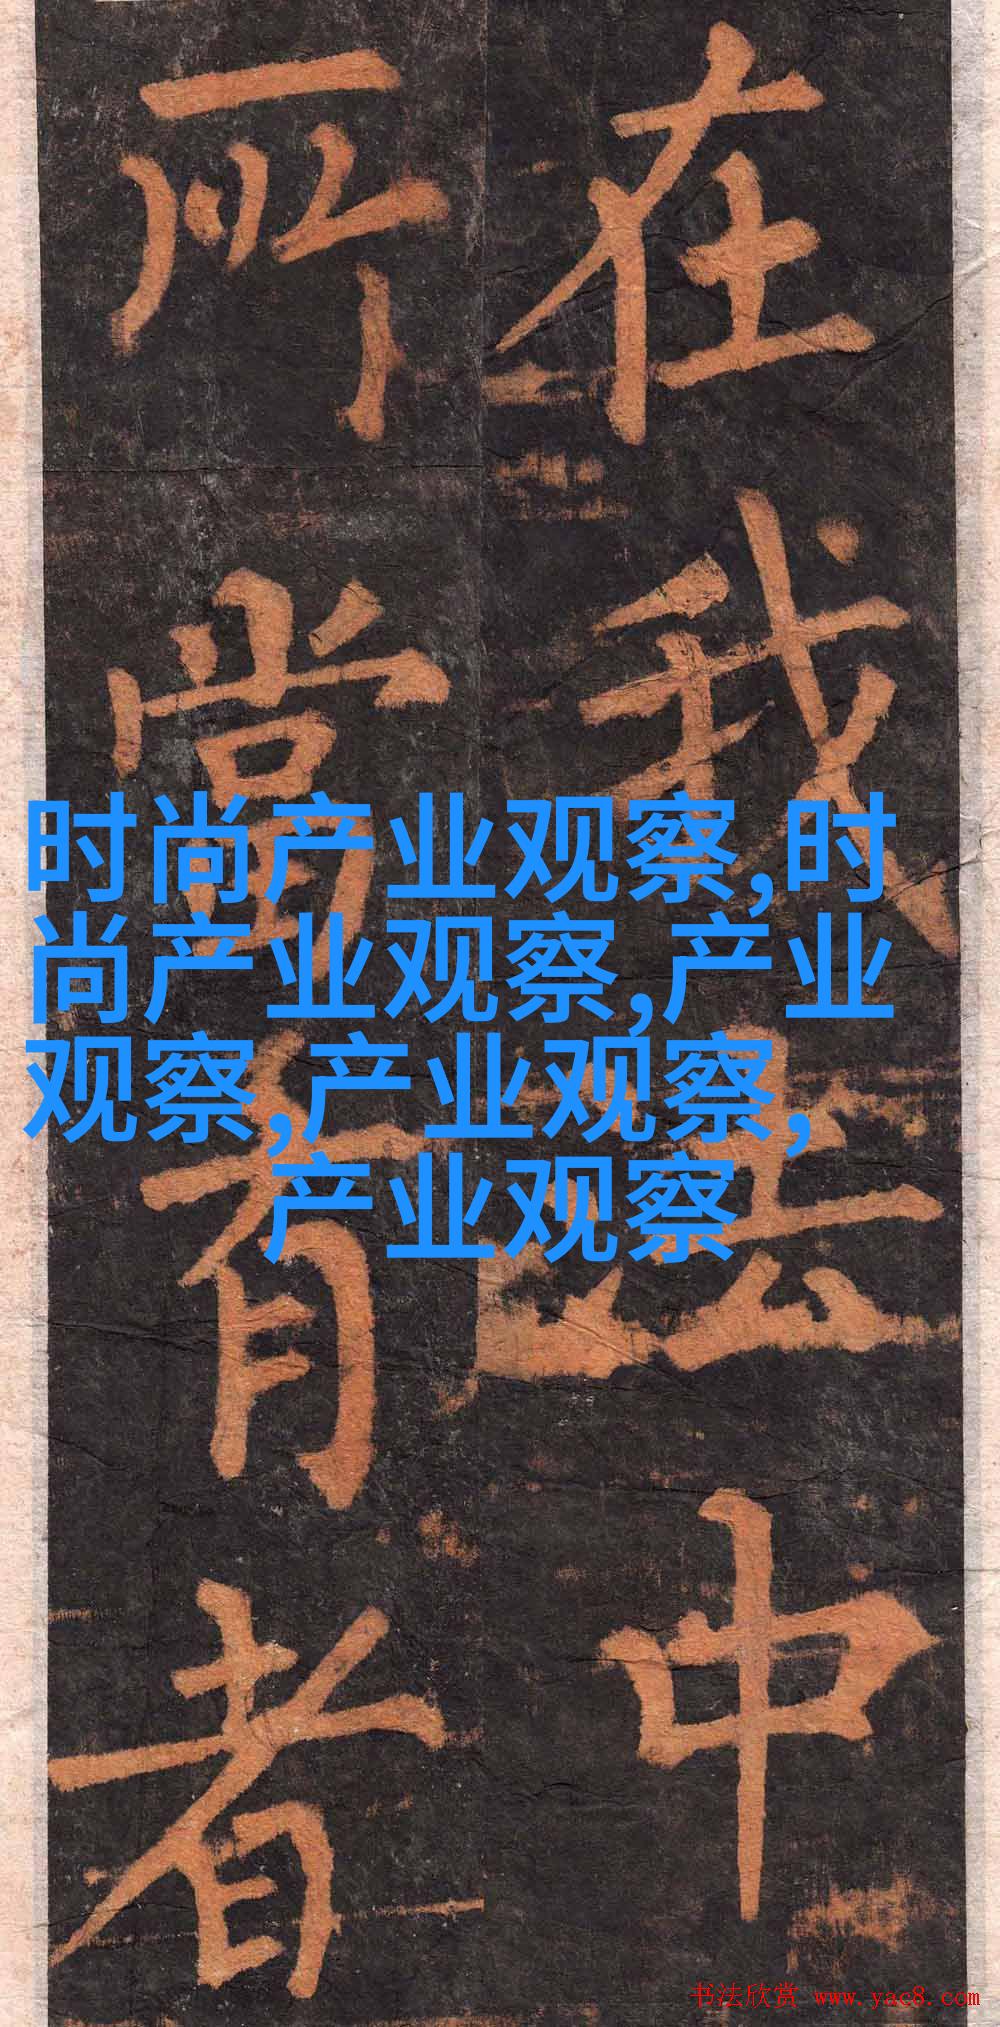 在我法中
所當有者
时尚产业观察,时
尚产业观察,产业
观察,产业观察,
产业观察
书法欣赏 www.yac8.com